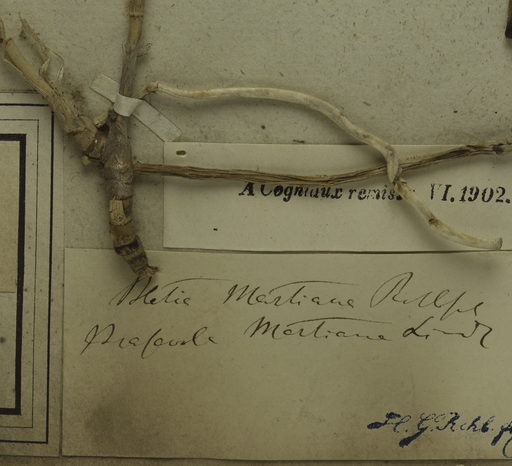 A Cogniaux remis.. VI.1902.
Bletia Martiana Rchb fil
Brassavola Martiana Lindl
H. G. Rchb. f